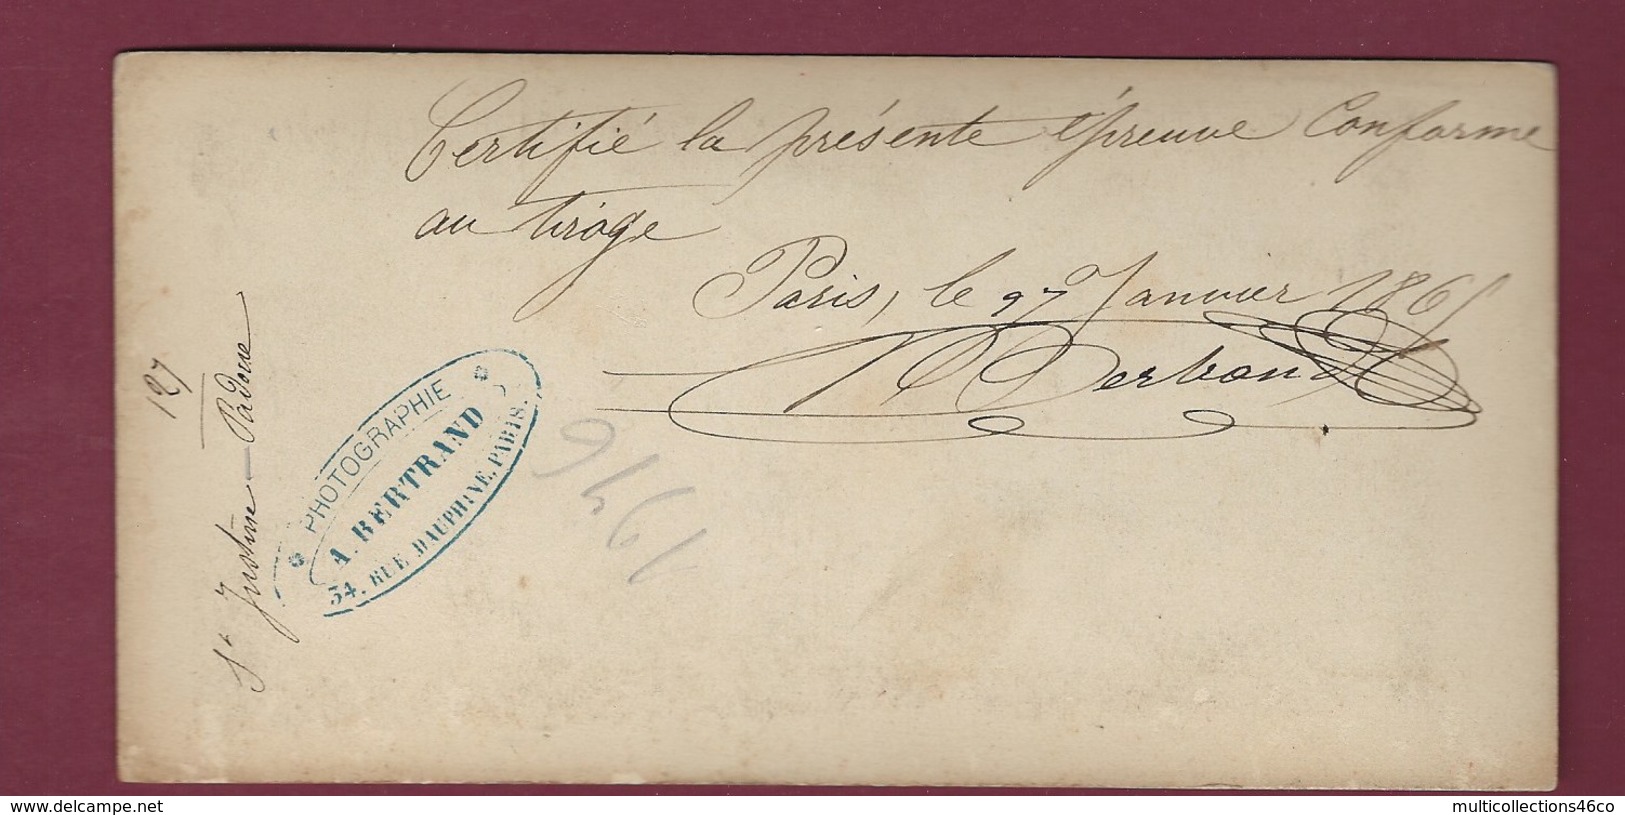 Certifié la présente épreuve Conforme
au tirage
Paris, le 27 Janvier 1865
A Bertrand
127
Ste Justine – Padoue
PHOTOGRAPHIE
A. BERTRAND
34, RUE DAUPHINE, PARIS.
www.delcampe.net
multicollections46co